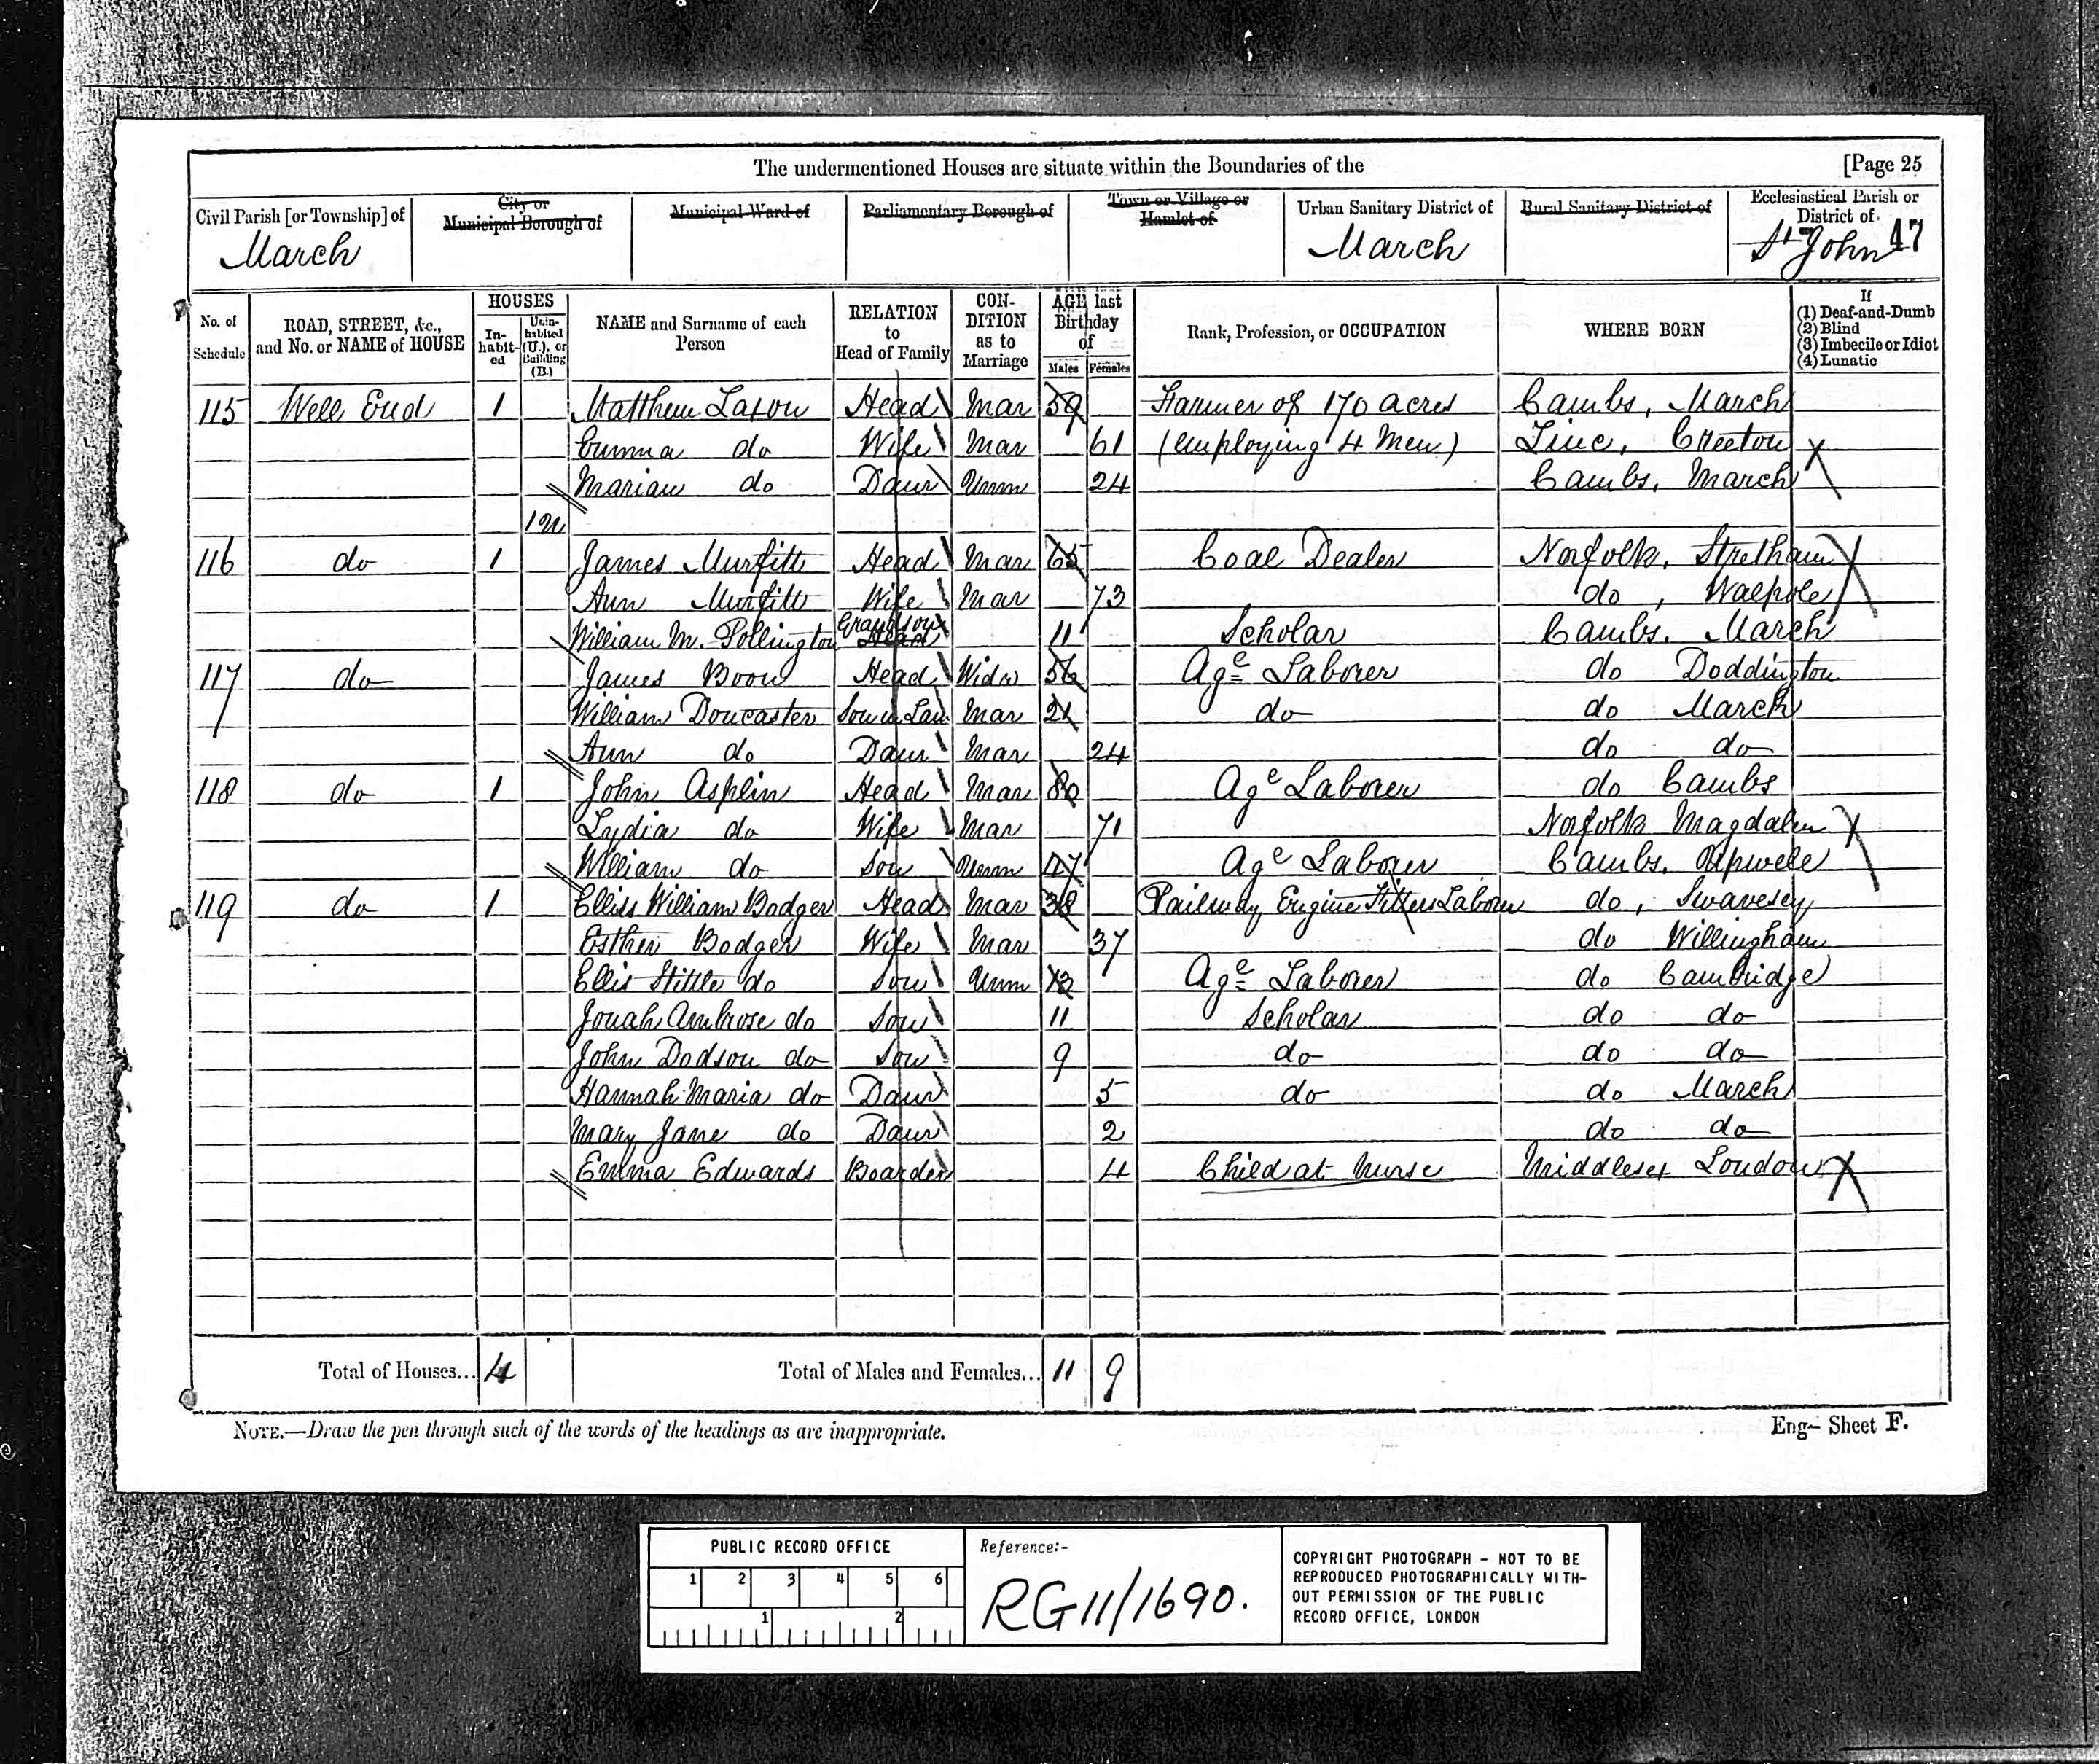 The undermentioned Houses are situate within the Boundaries of the [Page 25
Civil Parish [or Township] of March
City or Municipal Borough of
Municipal Ward of
Parliamentary Borough of
Town or Village or Hamlet of
Urban Sanitary District of March
Rural Sanitary District of
Ecclesiastical Parish or District of St John 47
No. of Schedule
ROAD, STREET, &c., and No. or NAME of HOUSE
HOUSES
In-habit-ed
Unin-habited (U.), or Building (B.)
NAME and Surname of each Person
RELATION to Head of Family
CON-DITION as to Marriage
AGE last Birthday of
Males Females
Rank, Profession, or OCCUPATION
WHERE BORN
If
(1) Deaf-and-Dumb
(2) Blind
(3) Imbecile or Idiot
(4) Lunatic
115 Well End 1 Matthew Head Mar 59 Farmer of 170 acres Cambs, March
Emma do Wife Mar 61 (employing 4 Men) Linc,
Marian do Daur Unm 24 Cambs. March
1 u
116 do 1 James Murfitt Head Mar 65 Coal Dealer Norfolk, Stretham
Ann Murfitt Wife Mar 73 do, Walpole
William M. Pollington Head Grandson 11 Scholar Cambs. March
117 do James Boon Head Widr 56 Age Laborer do Doddington
William Doncaster Son in Law Mar 21 do do March
Ann do Daur Mar 24 do do
118 do 1 John Asplin Head Mar 80 Age Laborer do Cambs
Lydia do Wife Mar 71 Norfolk Magdalen
William do Son Unm 47 Age Laborer Cambs. Upwele
119 do 1 Elliss William Bodger Head Mar 38 Railway Engine Fitters Laborer do, Swavesey
Esther Bodger Wife Mar 37 do Willingham
Ellis Stittle do Son Unm 13 Age Laborer do Cambridge
Jonah Ambrose do Son 11 Scholar do do
John Dodson do Son 9 do do do
Hannah Maria do Daur 5 do do March
Mary Jane do Daur 2 do do
Emma Edwards Boarder 4 Child at Nurse Middlesex London
Total of Houses... 4 Total of Males and Females... 11 9
NOTE.—Draw the pen through such of the words of the headings as are inappropriate.
Eng– Sheet F.
PUBLIC RECORD OFFICE
1 2 3 4 5 6
1 2
Reference:-
RG11/1690.
COPYRIGHT PHOTOGRAPH - NOT TO BE
REPRODUCED PHOTOGRAPHICALLY WITH-
OUT PERMISSION OF THE PUBLIC
RECORD OFFICE, LONDON